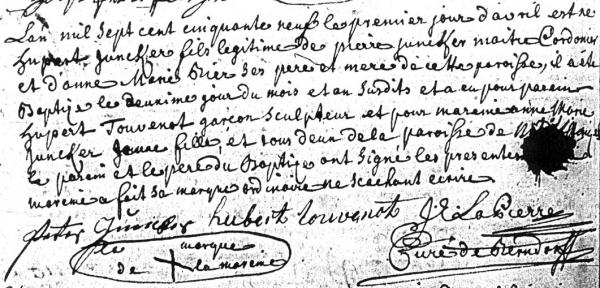 Lan mil sept cent cinquante neuf le premier jour d'avril est ne
hupert Juncker fils legitime de pierre juncker maitre Cordonier
et d'anne Marie Bier ses pere et mere de cette paroisse, il a ete
Baptise le deuxime jour du mois et an susdits et a eu pour parein
hupert Touvenot garçon Sculpteur et pour mareine anne Marie
Juncker jeune fille, et tous deux de la paroisse de
le parein et le pere du Baptise ont signé les presentes
mareine a fait sa marque ordinaire ne scachant ecrire
peter Juncker hubert touvenot J. LaPierre
marque
de + la mareine
Curé de